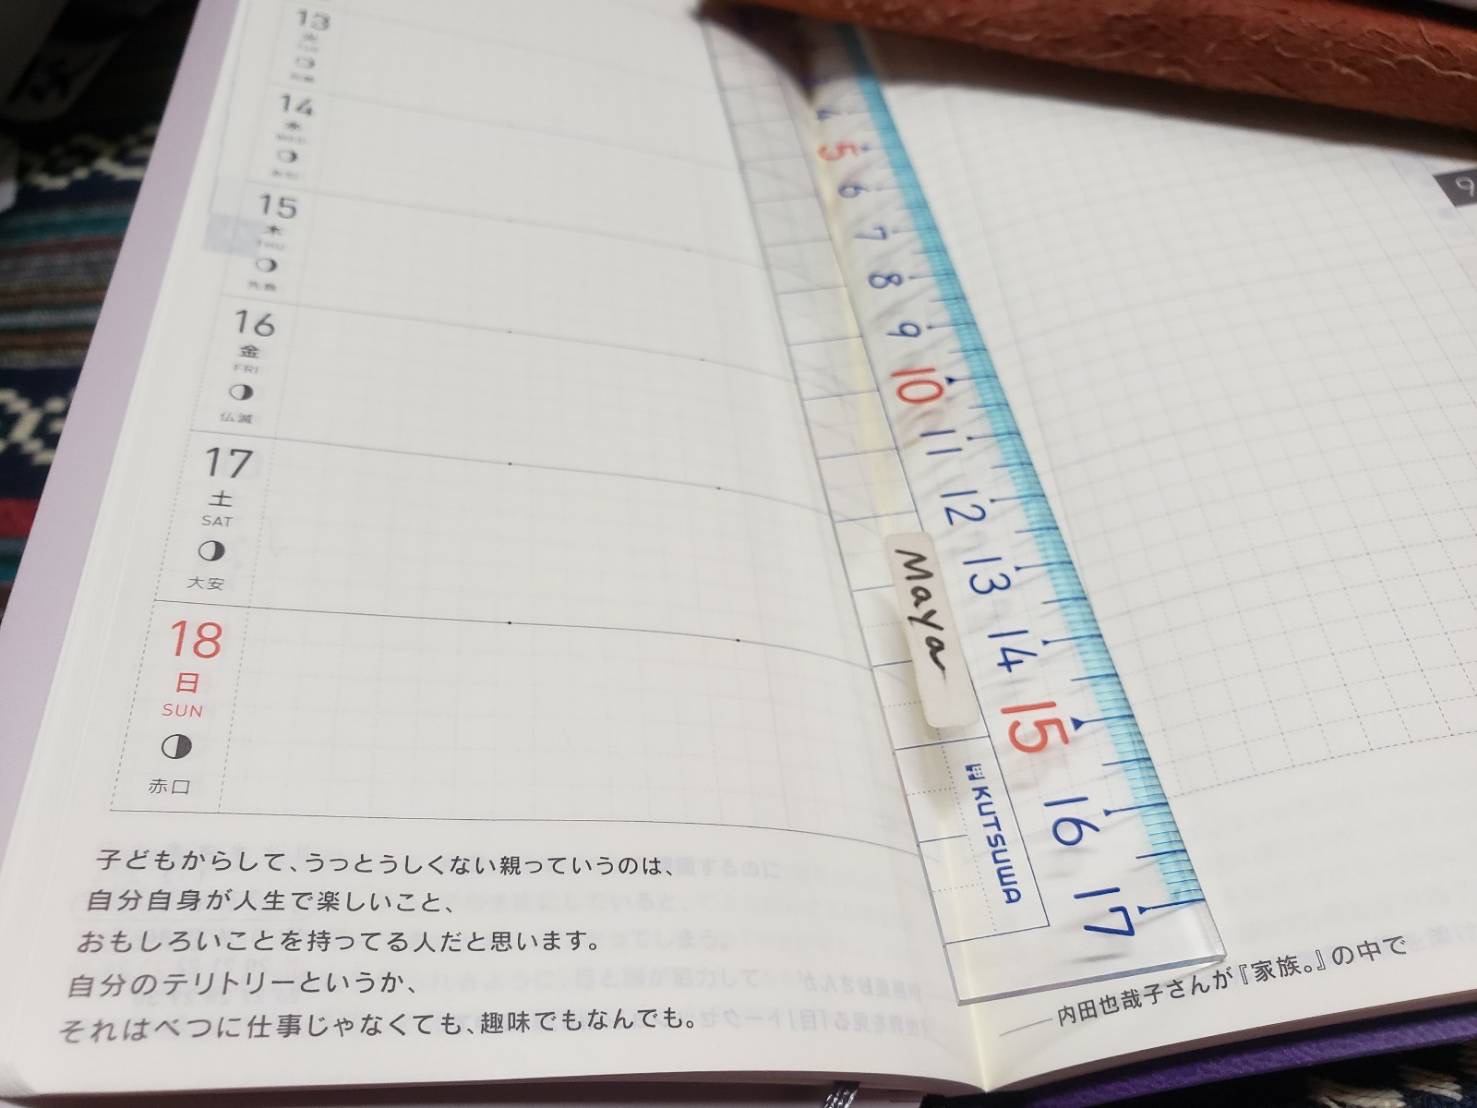 13
火
14
水
15
木
THU
先負
16
金
FRI
仏滅
17
土
SAT
大安
18
日
SUN
赤口
子どもからして、うっとうしくない親っていうのは、
自分自身が人生で楽しいこと、
おもしろいことを持ってる人だと思います。
自分のテリトリーというか、
それはべつに仕事じゃなくても、趣味でもなんでも。
——内田也哉子さんが『家族。』の中で
4
5
6
7
8
9
10
11
12
13
14
15
16
17
Maya
KUTSUWA
9